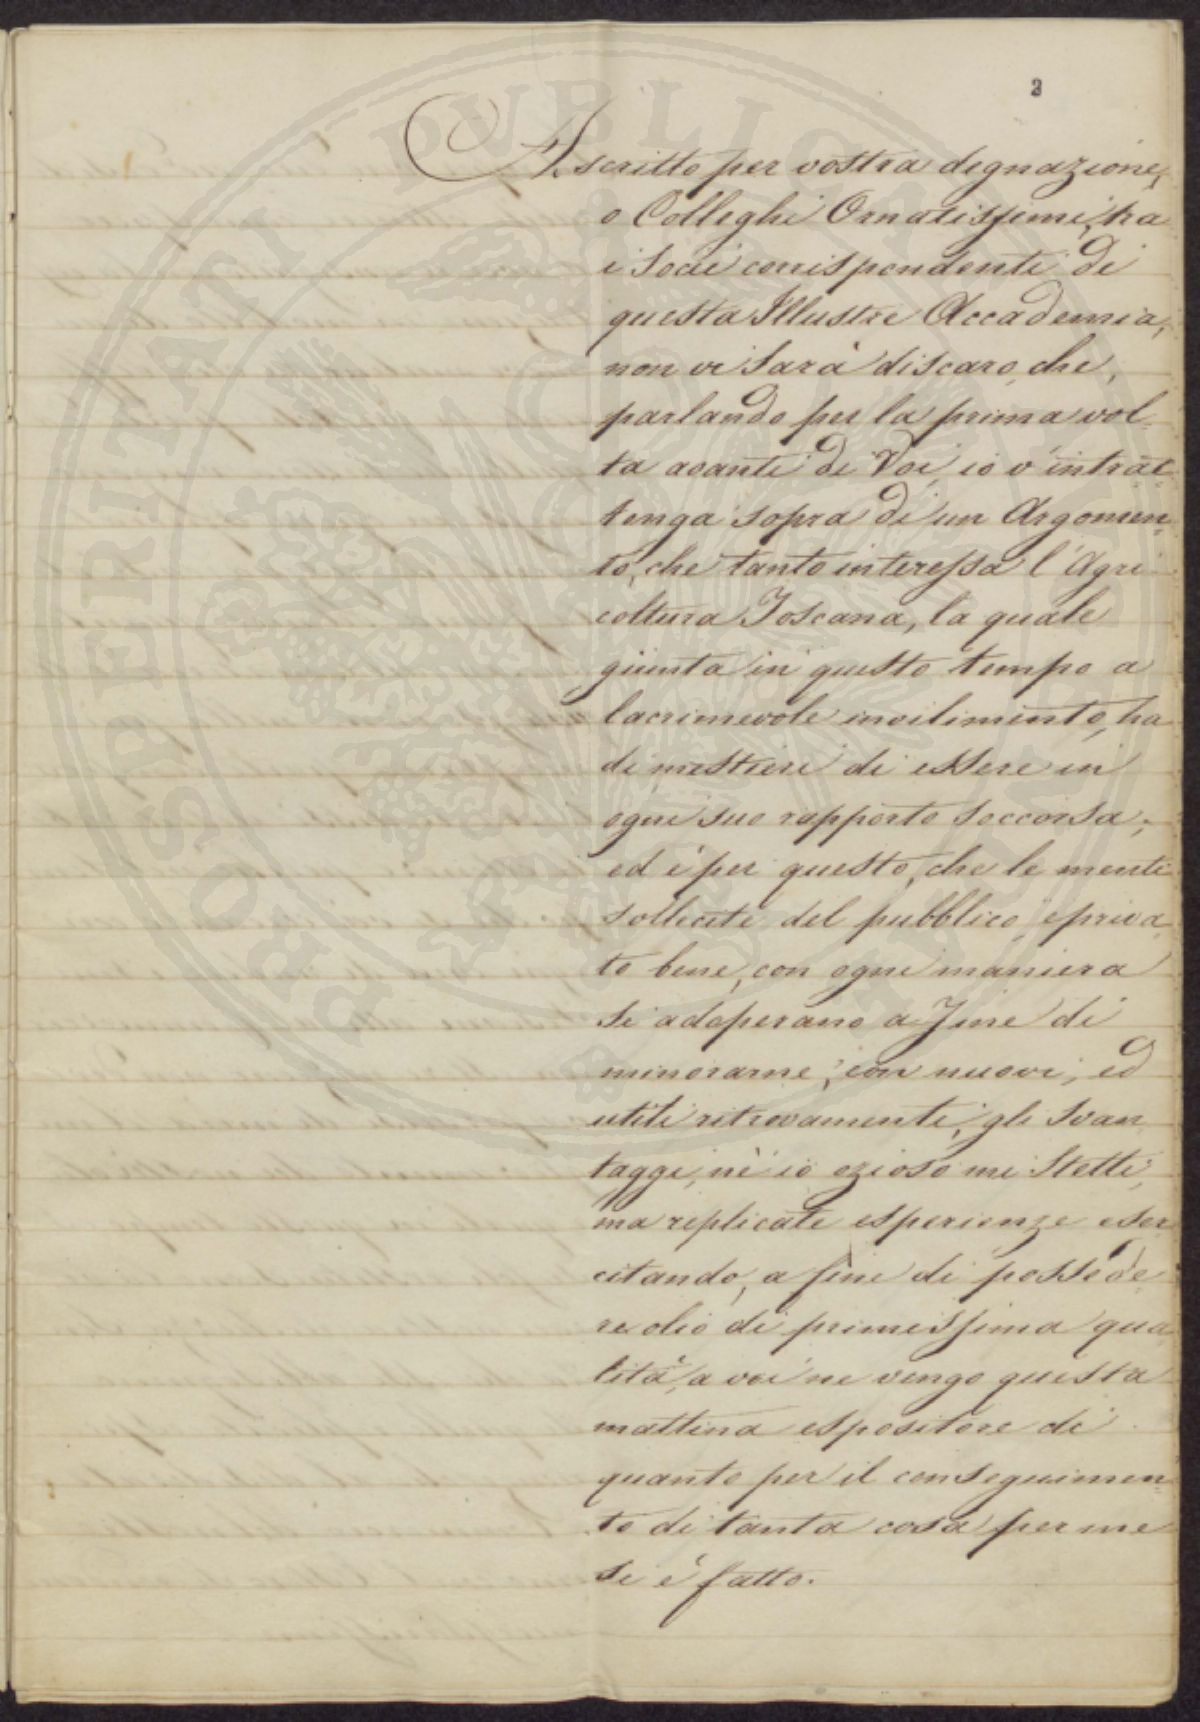 2
Ascritto per vostra degnazione,
o Colleghi Ornatissimi, tra
i Socii corrispondenti di
questa Illustre Accademia,
non vi sarà discaro, che,
parlando per la prima vol-
ta avanti di Voi, io v'intrat-
tenga sopra di un Argomen-
to, che tanto interessa l'Agri
coltura Toscana, la quale
giunta in questo tempo a
lacrimevole invilimento, ha
di mestieri di essere in
ogni suo rapporto soccorsa;
ed è per questo, che le menti
sollecite del pubblico, e priva-
to bene, con ogni maniera
si adoperano a fine di
minorarne, con nuovi, ed
utili ritrovamenti, gli svan
taggi, nè io ozioso mi stetti,
ma replicate esperienze eser
citando, a fine di possede-
re olio di primissima qua-
lità, a voi ne vengo questa
mattina espositore di
quanto per il conseguimen-
to di tanta cosa per me
si è fatto.
PROSPERITATI PUBLICAE AUGENDAE